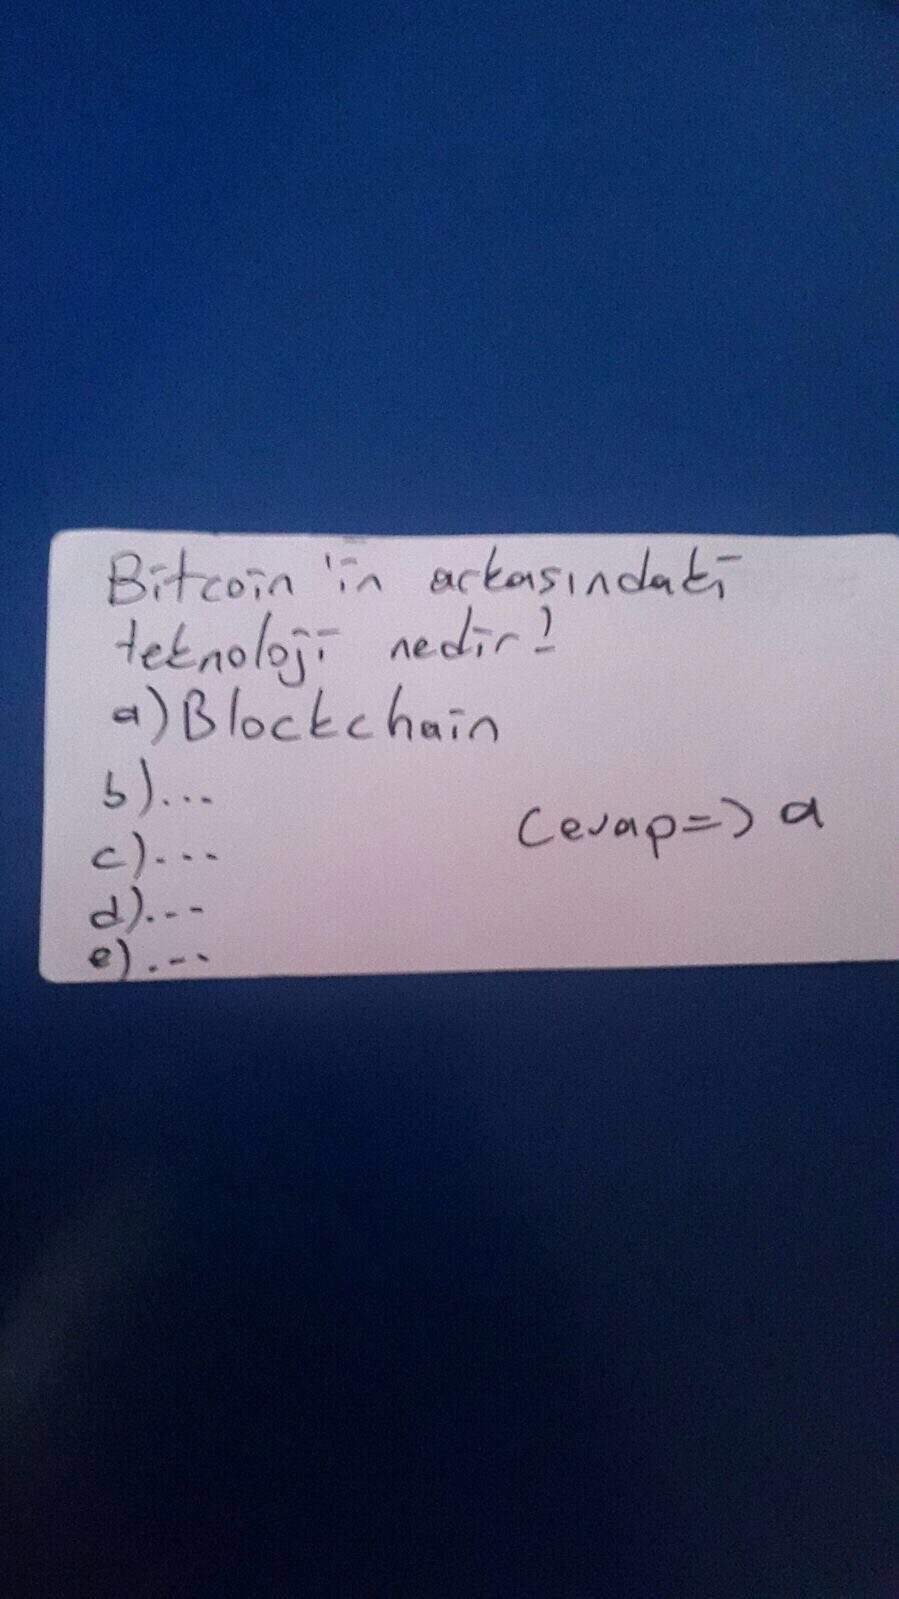 Bitcoin'in arkasındaki
teknoloji nedir?
a) Blockchain
b)...
c)...
Cevap=> a
d)...
e)...